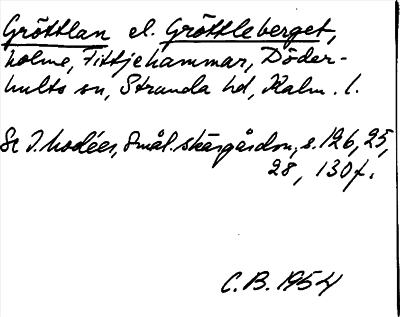 Gröttlan el. Gröttleberget,
holme, Fittjehammar, Döder-
hults sn, Stranda hd, Kalm. l.
Se I. Modéer, Smål. skärgårdsn, s. 126, 25,
28, 130f.
C.B. 1954